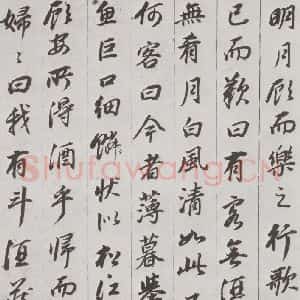 明月顧而樂之行歌
已而歎曰有客無酒
無肴月白風清如此
何客曰今者薄暮舉
魚巨口細鱗狀似松江
顧安所得酒乎歸而
婦〻曰我有斗酒藏
Shufawang.CN